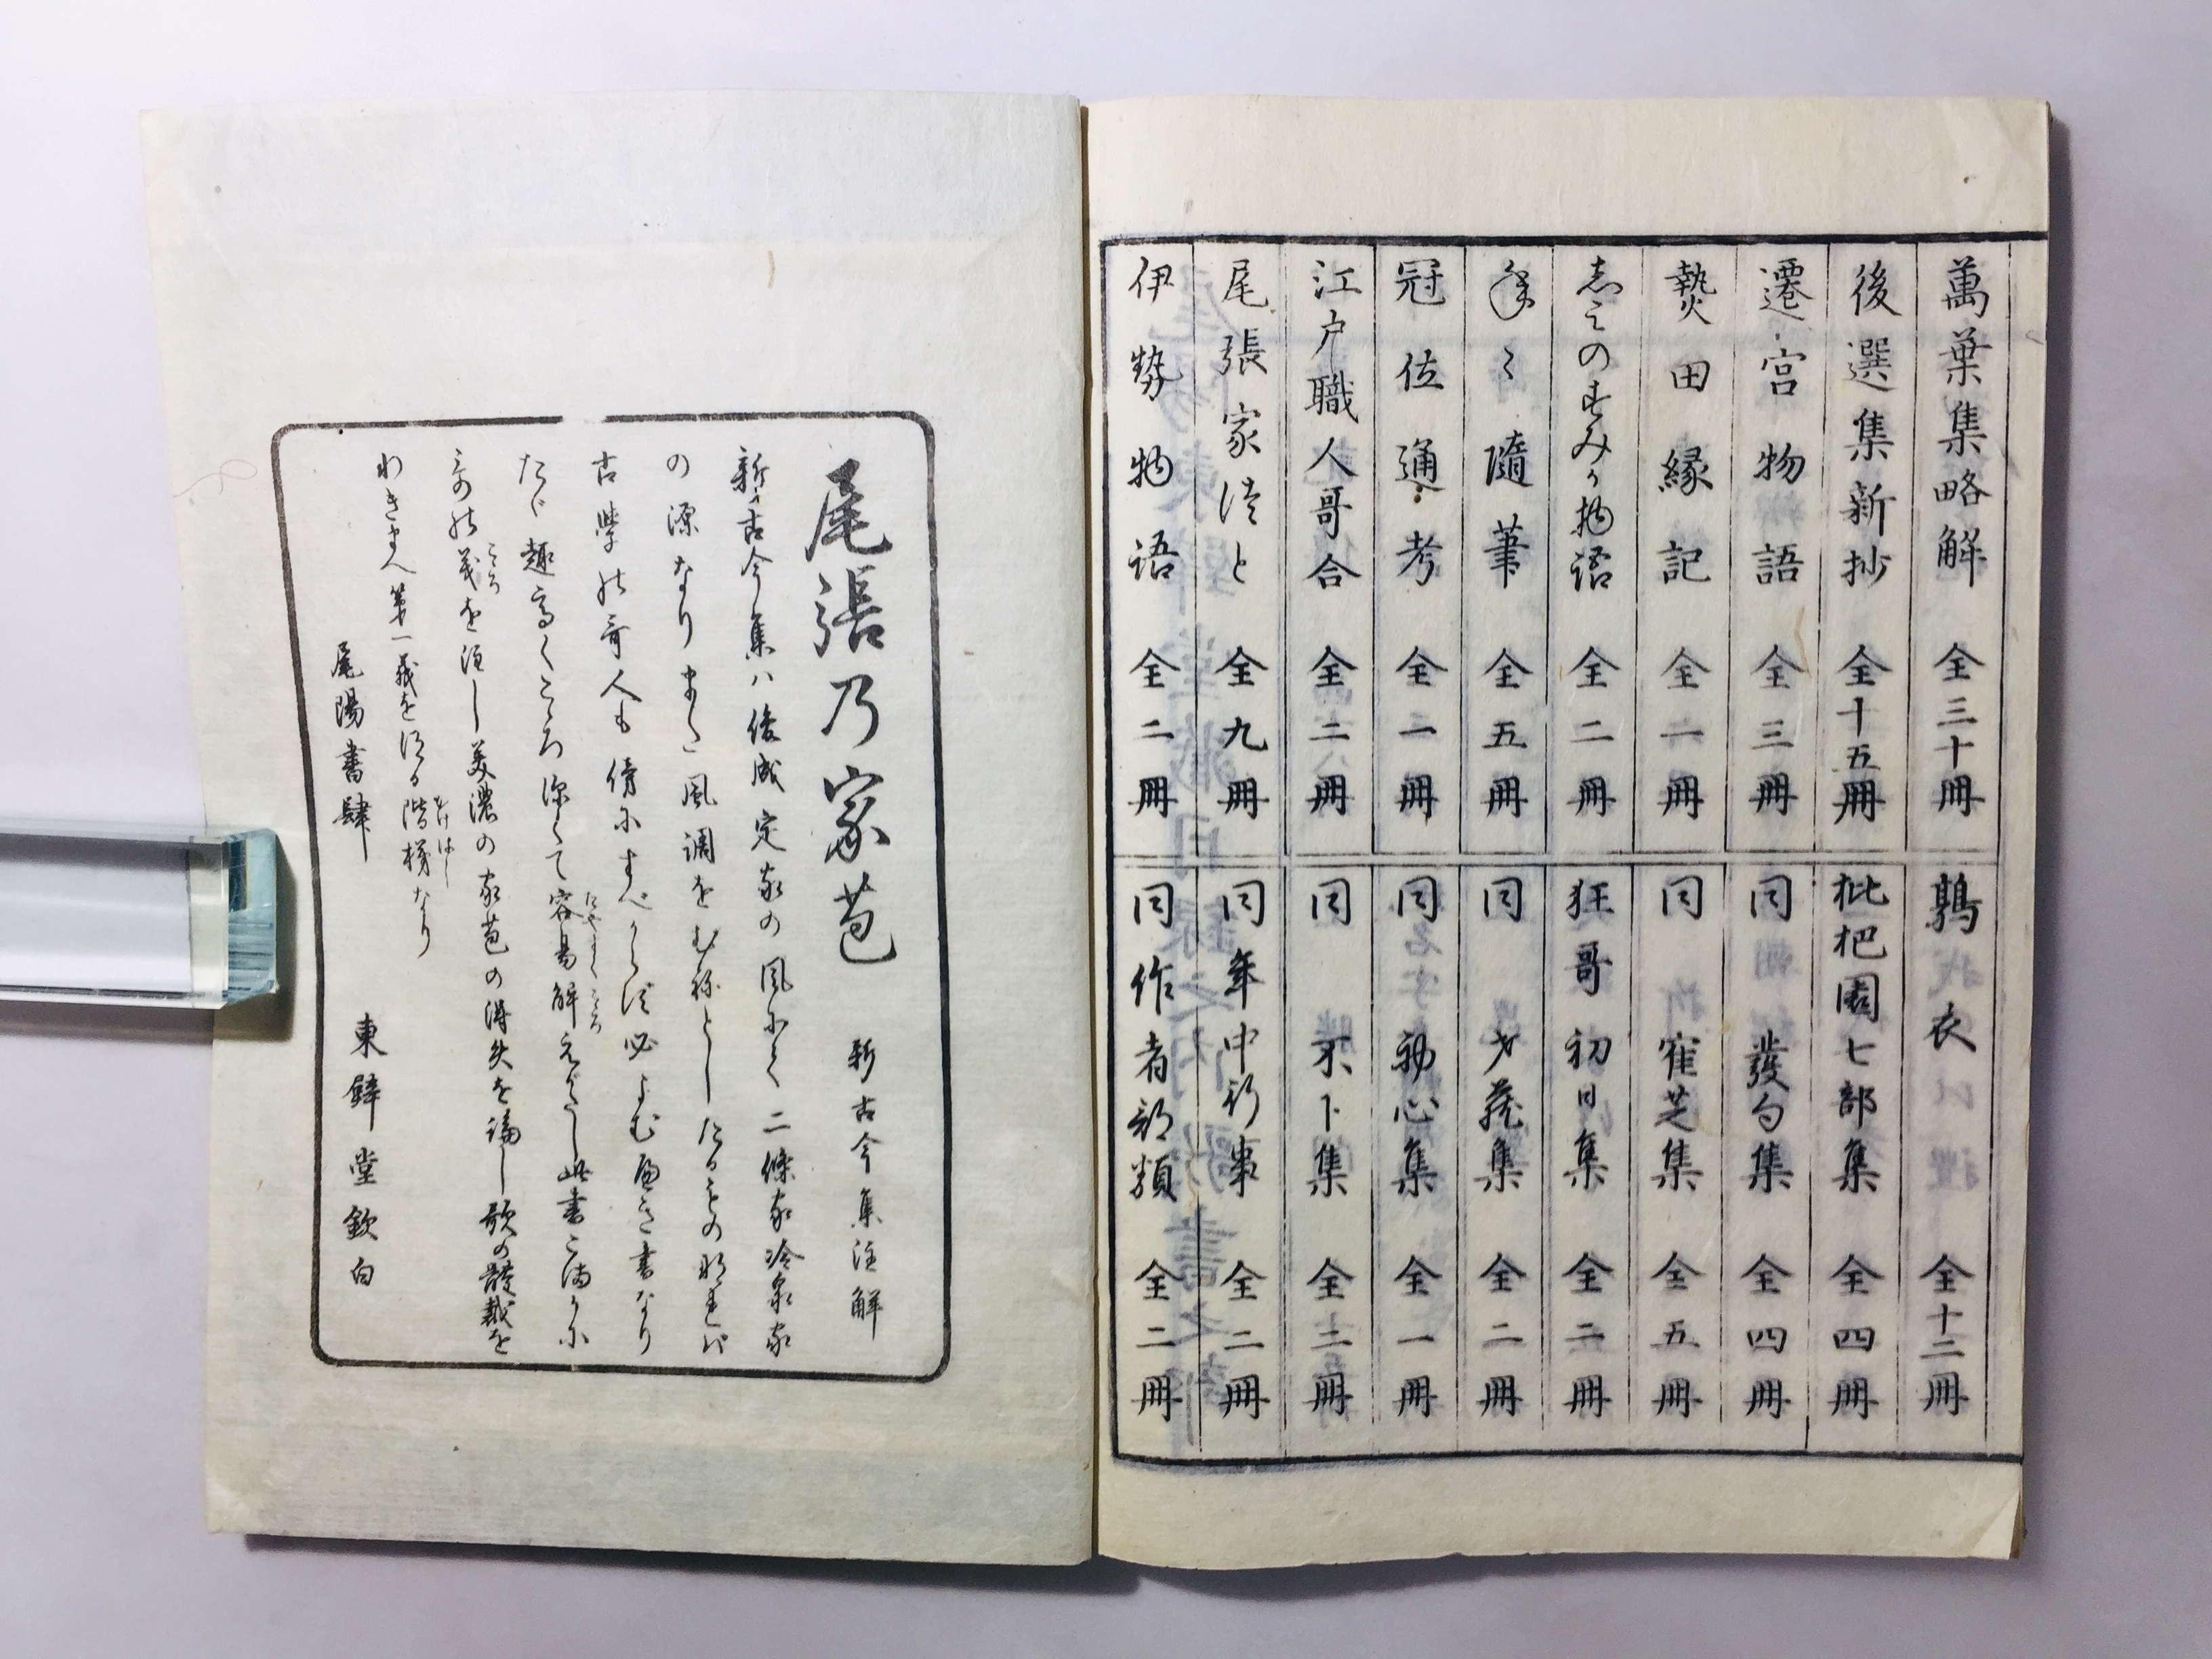 萬葉集略解 全三十冊
後選集新抄 全十五冊
遷宮物語 全三冊
熱田縁記 全一冊
志みのすみか物語 全二冊
年々随筆 全五冊
冠位通考 全一冊
江戸職人哥合 全二冊
尾張家つと 全九冊
伊勢物語 全二冊
鶉衣 全十二冊
枇杷園七部集 全四冊
同 發句集 全四冊
同 寉芝集 全五冊
狂哥初日集 全二冊
同 才蔵集 全二冊
同 初心集 全一冊
同 木下集 全二冊
同年中行事 全二冊
同作者部類 全二冊
尾張乃家苞 新古今集注解
新古今集ハ俊成定家の風にして二條家冷泉家
の源なりまた風調をむねとしたるものなれば
古學の哥人も傍にすべからず必よむべき書なり
たゞ趣高くこころ深くて容易解えがたし此書こまかに
その義を注し美濃の家苞の得失を論し歌の體裁を
わきまへ第一義をしる階梯なり
尾陽書肆 東壁堂欽白